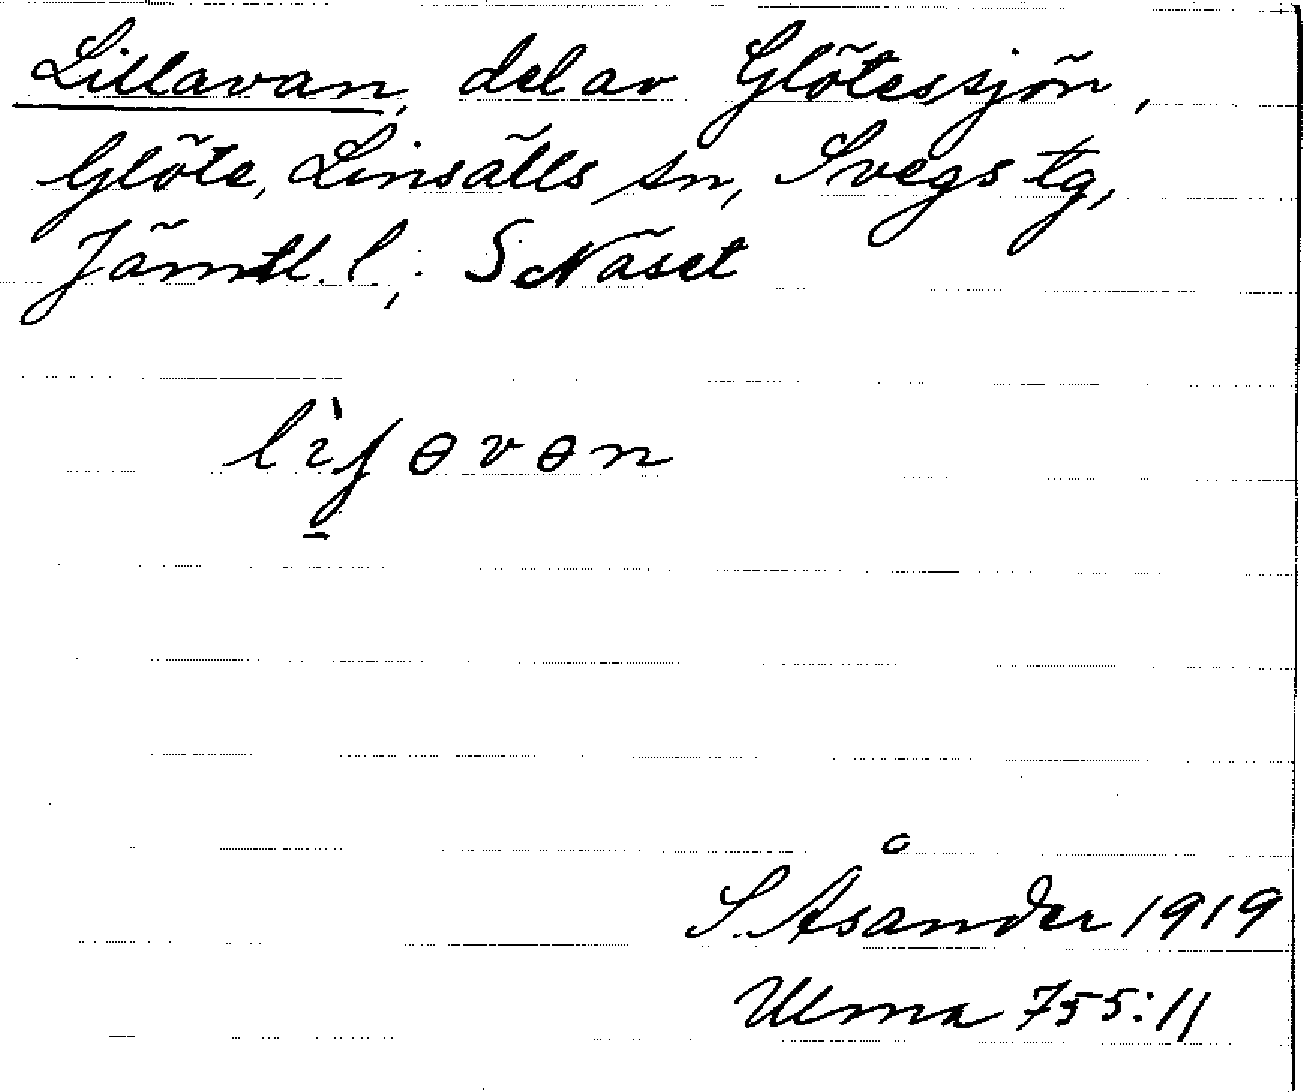 Lillavan, del av Glötessjön,
Glöte, Linsälls sn, Svegs tg,
Jämtl. l.; S Näset
S. Åsander 1919
Ulma 755:11